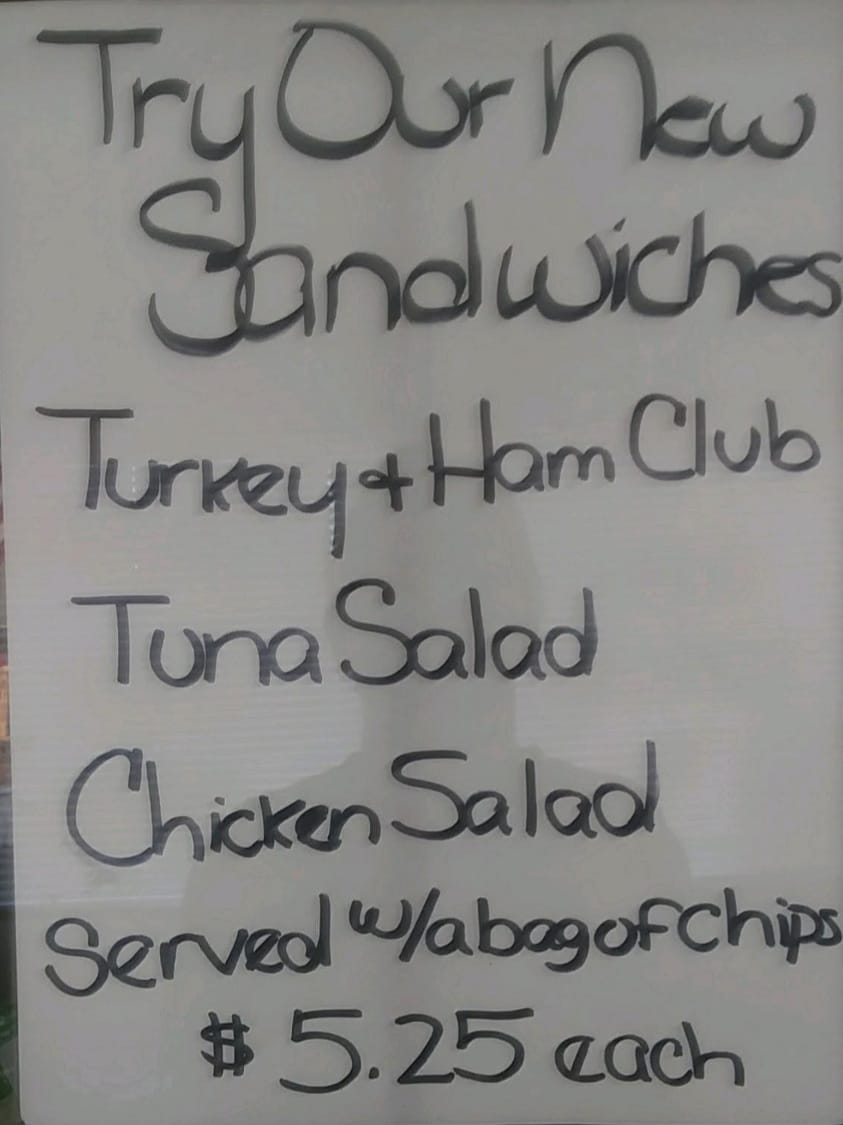 Try Our New
Sandwiches
Turkey + Ham Club
Tuna Salad
Chicken Salad
Served w/ a bag of chips
$5.25 each